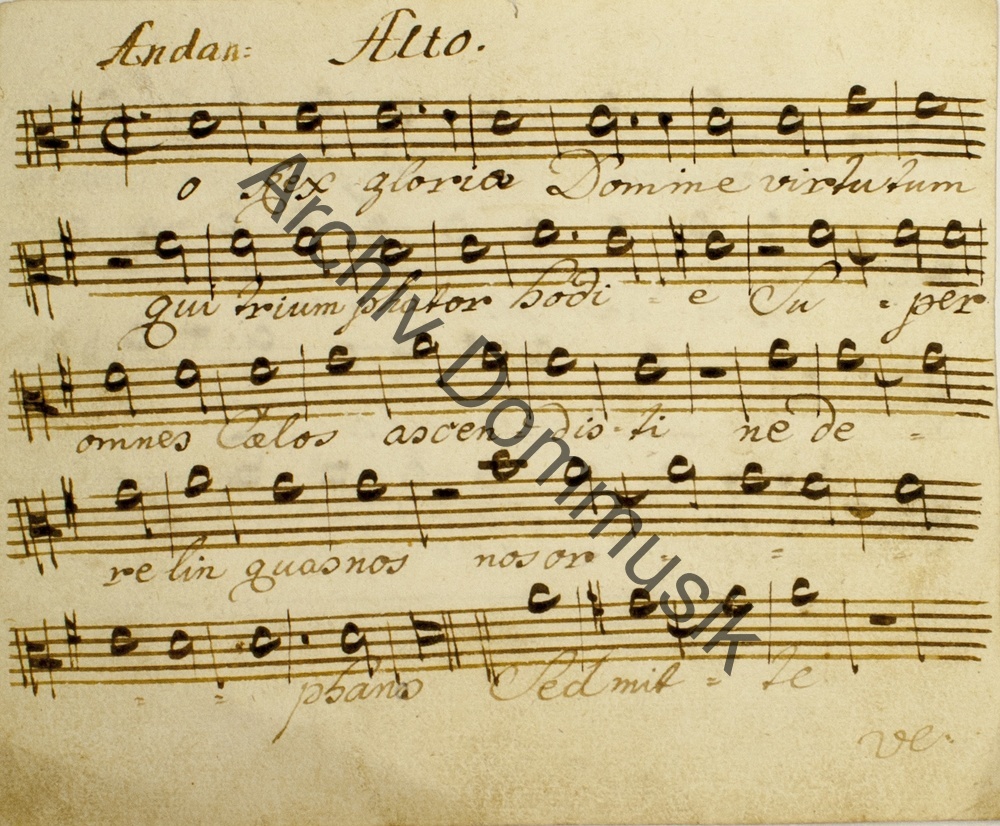 Andan: Alto.
o Rex gloriæ Domine virtutum
qui trium phator hodi = e Su = per
omnes Cælos ascen = dis = ti ne de =
re lin quas nos nos or = = =
= = phanos Sed mit = te
ve.
Archiv Dommusik